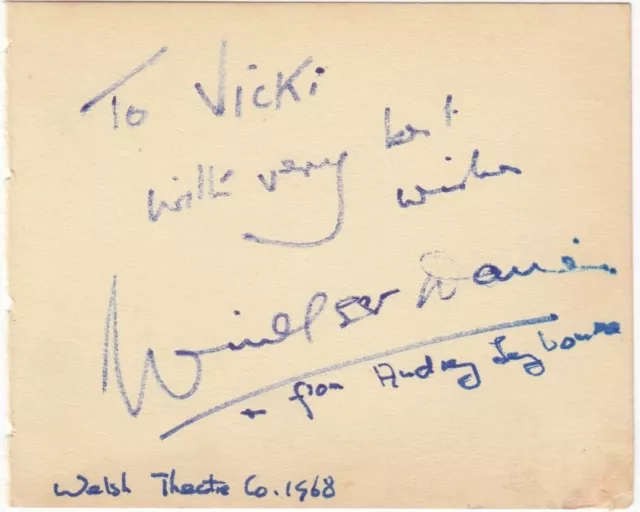 To Vicki
with very best
wishes
Windsor Davies
+ from Audrey Leybourne
Welsh Theatre Co. 1968